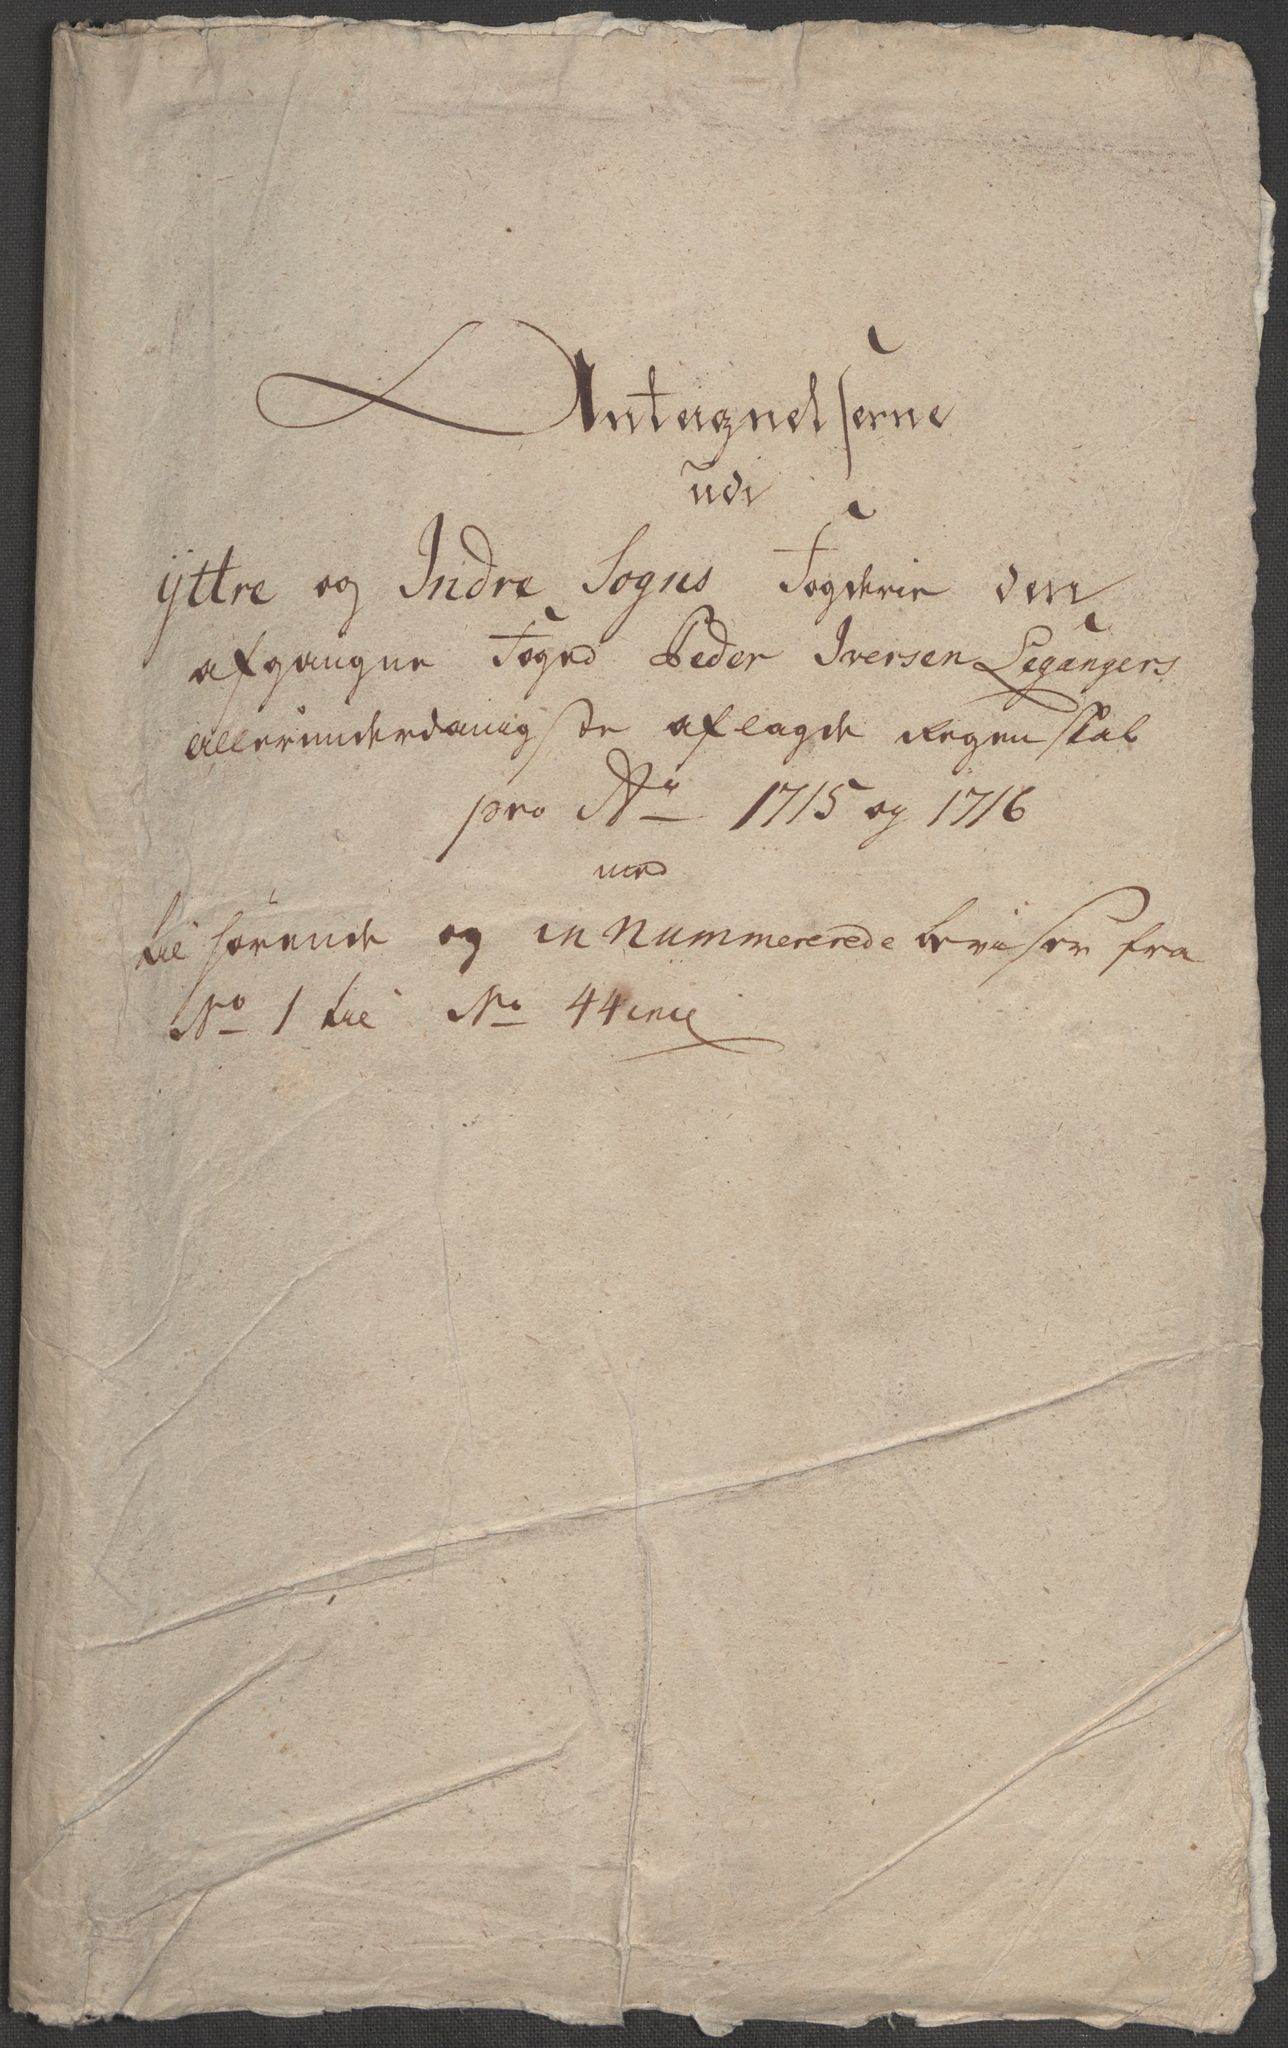 Antegnelserne
udi
Yttre og Indre Sogns Fogderie den
afgangne Foged Peder Iversen Legangers
allerunderdanigste aflagde Regenskab
pro A° 1715 og 1716
med
til hørende og in Nummererede beviser fra
No 1 til No 44 incl